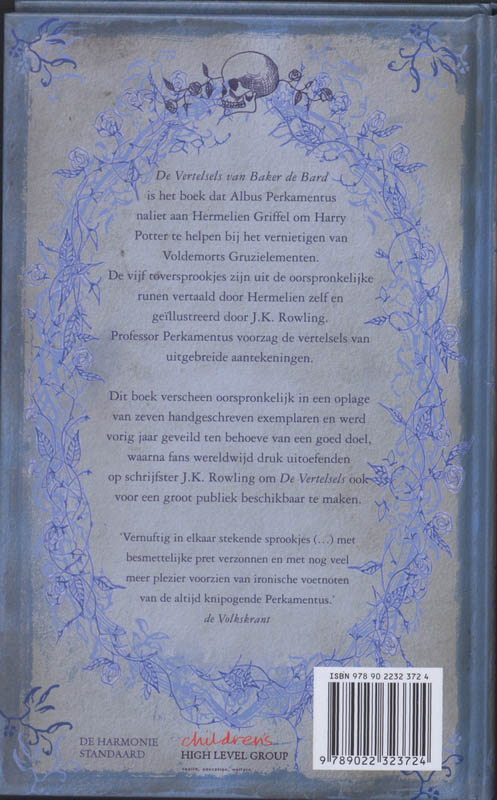 De Vertelsels van Baker de Bard
is het boek dat Albus Perkamentus
naliet aan Hermelien Griffel om Harry
Potter te helpen bij het vernietigen van
Voldemorts Gruzielementen.
De vijf toversprookjes zijn uit de oorspronkelijke
runen vertaald door Hermelien zelf en
geïllustreerd door J.K. Rowling.
Professor Perkamentus voorzag de vertelsels van
uitgebreide aantekeningen.
Dit boek verscheen oorspronkelijk in een oplage
van zeven handgeschreven exemplaren en werd
vorig jaar geveild ten behoeve van een goed doel,
waarna fans wereldwijd druk uitoefenden
op schrijfster J.K. Rowling om De Vertelsels ook
voor een groot publiek beschikbaar te maken.
'Vernuftig in elkaar stekende sprookjes (...) met
besmettelijke pret verzonnen en met nog veel
meer plezier voorzien van ironische voetnoten
van de altijd knipogende Perkamentus.'
de Volkskrant
DE HARMONIE
STANDAARD
childrens
HIGH LEVEL GROUP
health, education, welfare
ISBN 978 90 2232 372 4
9 789022 323724